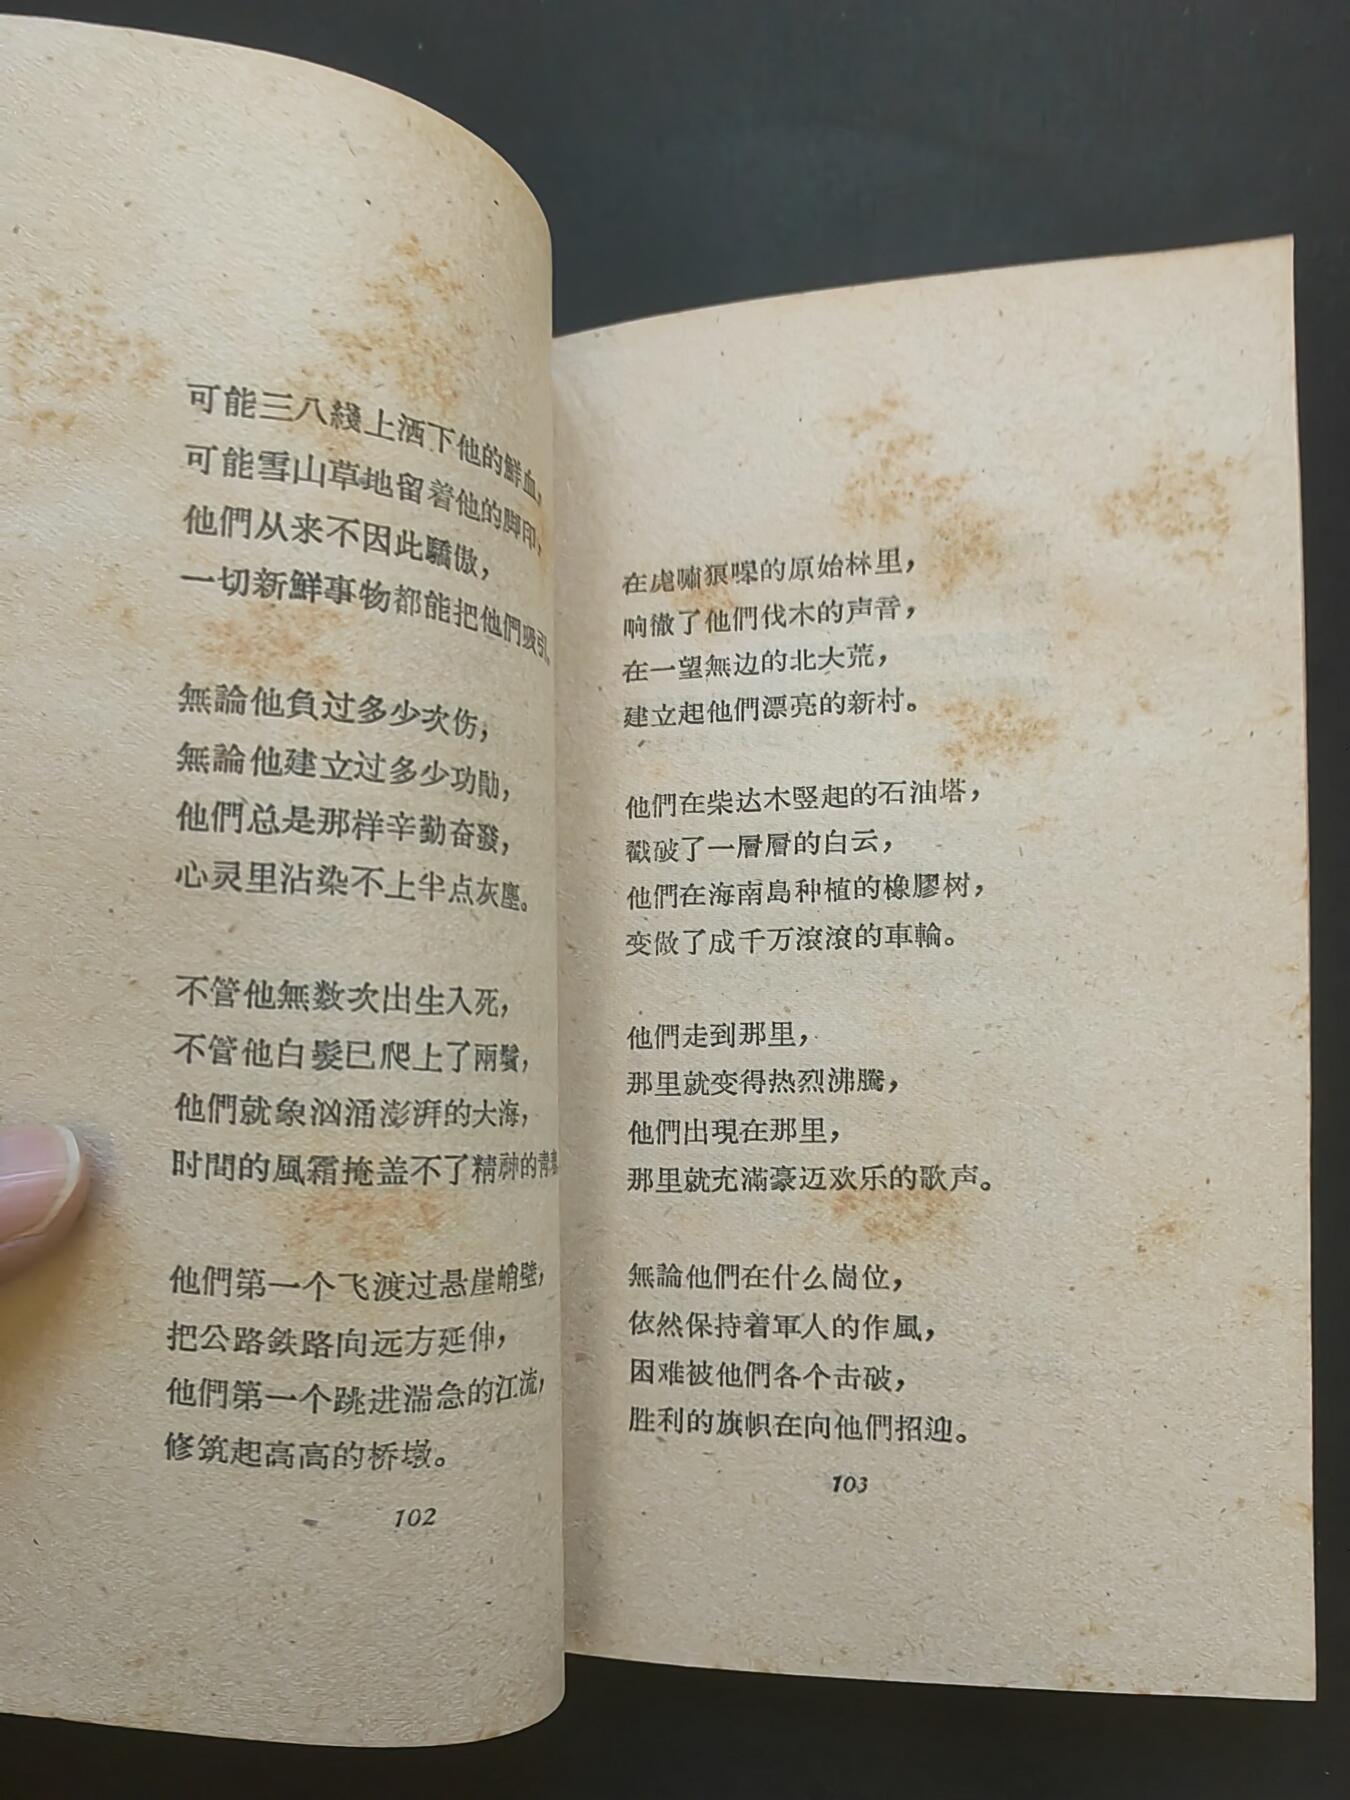 可能三八綫上洒下他的鮮血，
可能雪山草地留着他的脚印，
他們从来不因此驕傲，
一切新鮮事物都能把他們吸引。
無論他負过多少次伤，
無論他建立过多少功勛，
他們总是那样辛勤奋發，
心灵里沾染不上半点灰塵。
不管他無数次出生入死，
不管他白髮已爬上了兩鬢，
他們就象汹涌澎湃的大海，
时間的風霜掩盖不了精神的青春
他們第一个飞渡过悬崖峭壁，
把公路鉄路向远方延伸，
他們第一个跳进湍急的江流，
修筑起高高的桥墩。
102
在虎嘯狼嘷的原始林里，
响徹了他們伐木的声音，
在一望無边的北大荒，
建立起他們漂亮的新村。
他們在柴达木竪起的石油塔，
戳破了一層層的白云，
他們在海南島种植的橡膠树，
变做了成千万滾滾的車輪。
他們走到那里，
那里就变得热烈沸騰，
他們出現在那里，
那里就充滿豪迈欢乐的歌声。
無論他們在什么崗位，
依然保持着軍人的作風，
困难被他們各个击破，
胜利的旗帜在向他們招迎。
103